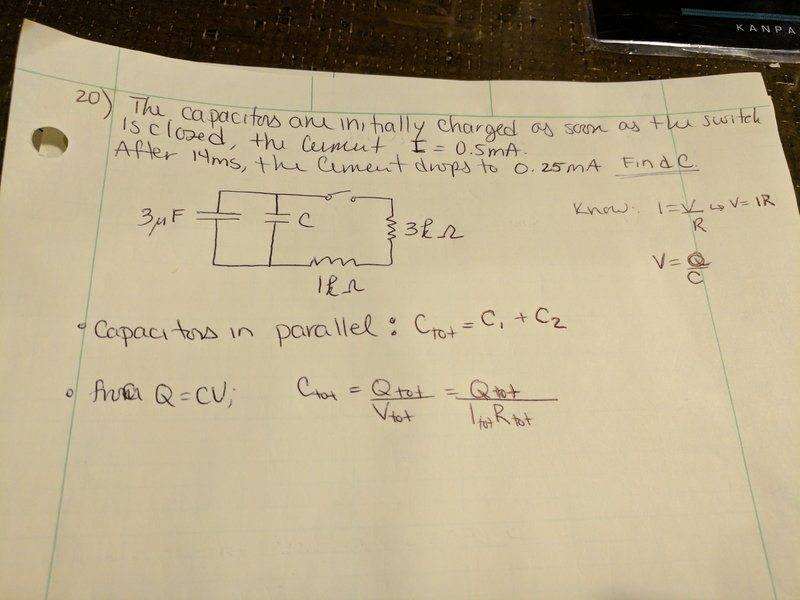 KANPA
20) The capacitors are initially charged as soon as the switch
is closed, the current I = 0.5mA.
After 14ms, the current drops to 0.25mA Find C.
3μF
C
3kΩ
1kΩ
Know: I = V/R ↳ V = IR
V = Q/C
• Capacitors in parallel: Ctot = C1 + C2
• from Q = CV; Ctot = Qtot/Vtot = Qtot/ItotRtot